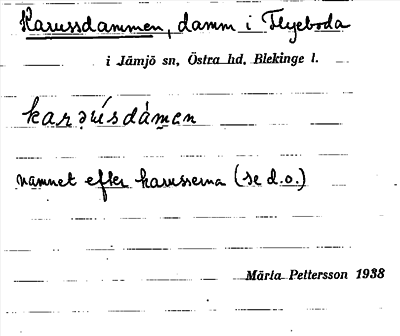 Karussdammen, damm i Flyeboda
i Jämjö sn, Östra hd, Blekinge l.
karusdàmen
namnet efter karusserna (se d.o.)
Märta Pettersson 1938